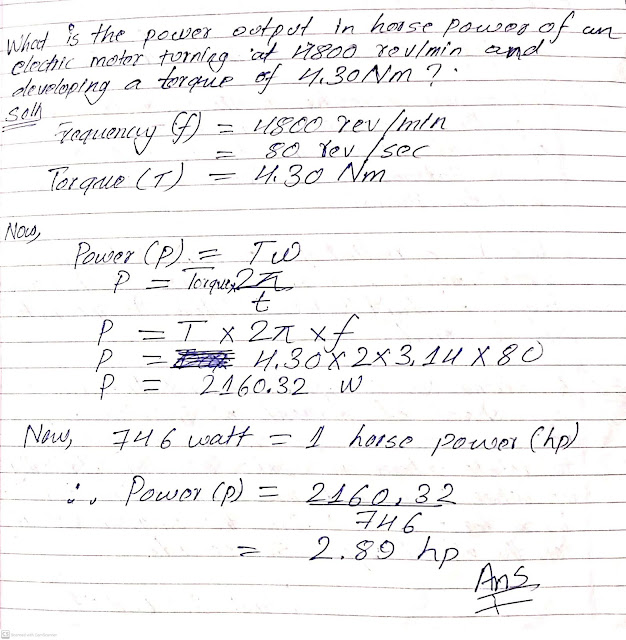 What is the power output in horse power of an
electric motor turning at 4800 rev/min and
developing a torque of 4.30 Nm ?
Soln
Frequency (f) = 4800 rev/min
= 80 rev/sec
Torque (T) = 4.30 Nm
Now,
Power (P) = Tω
P = Torque x 2π/t
P = T x 2π x f
P = 4.30 x 2 x 3.14 x 80
P = 2160.32 w
Now, 746 watt = 1 horse power (hp)
∴ Power (P) = 2160.32/746
= 2.89 hp
Ans
CS Scanned with CamScanner